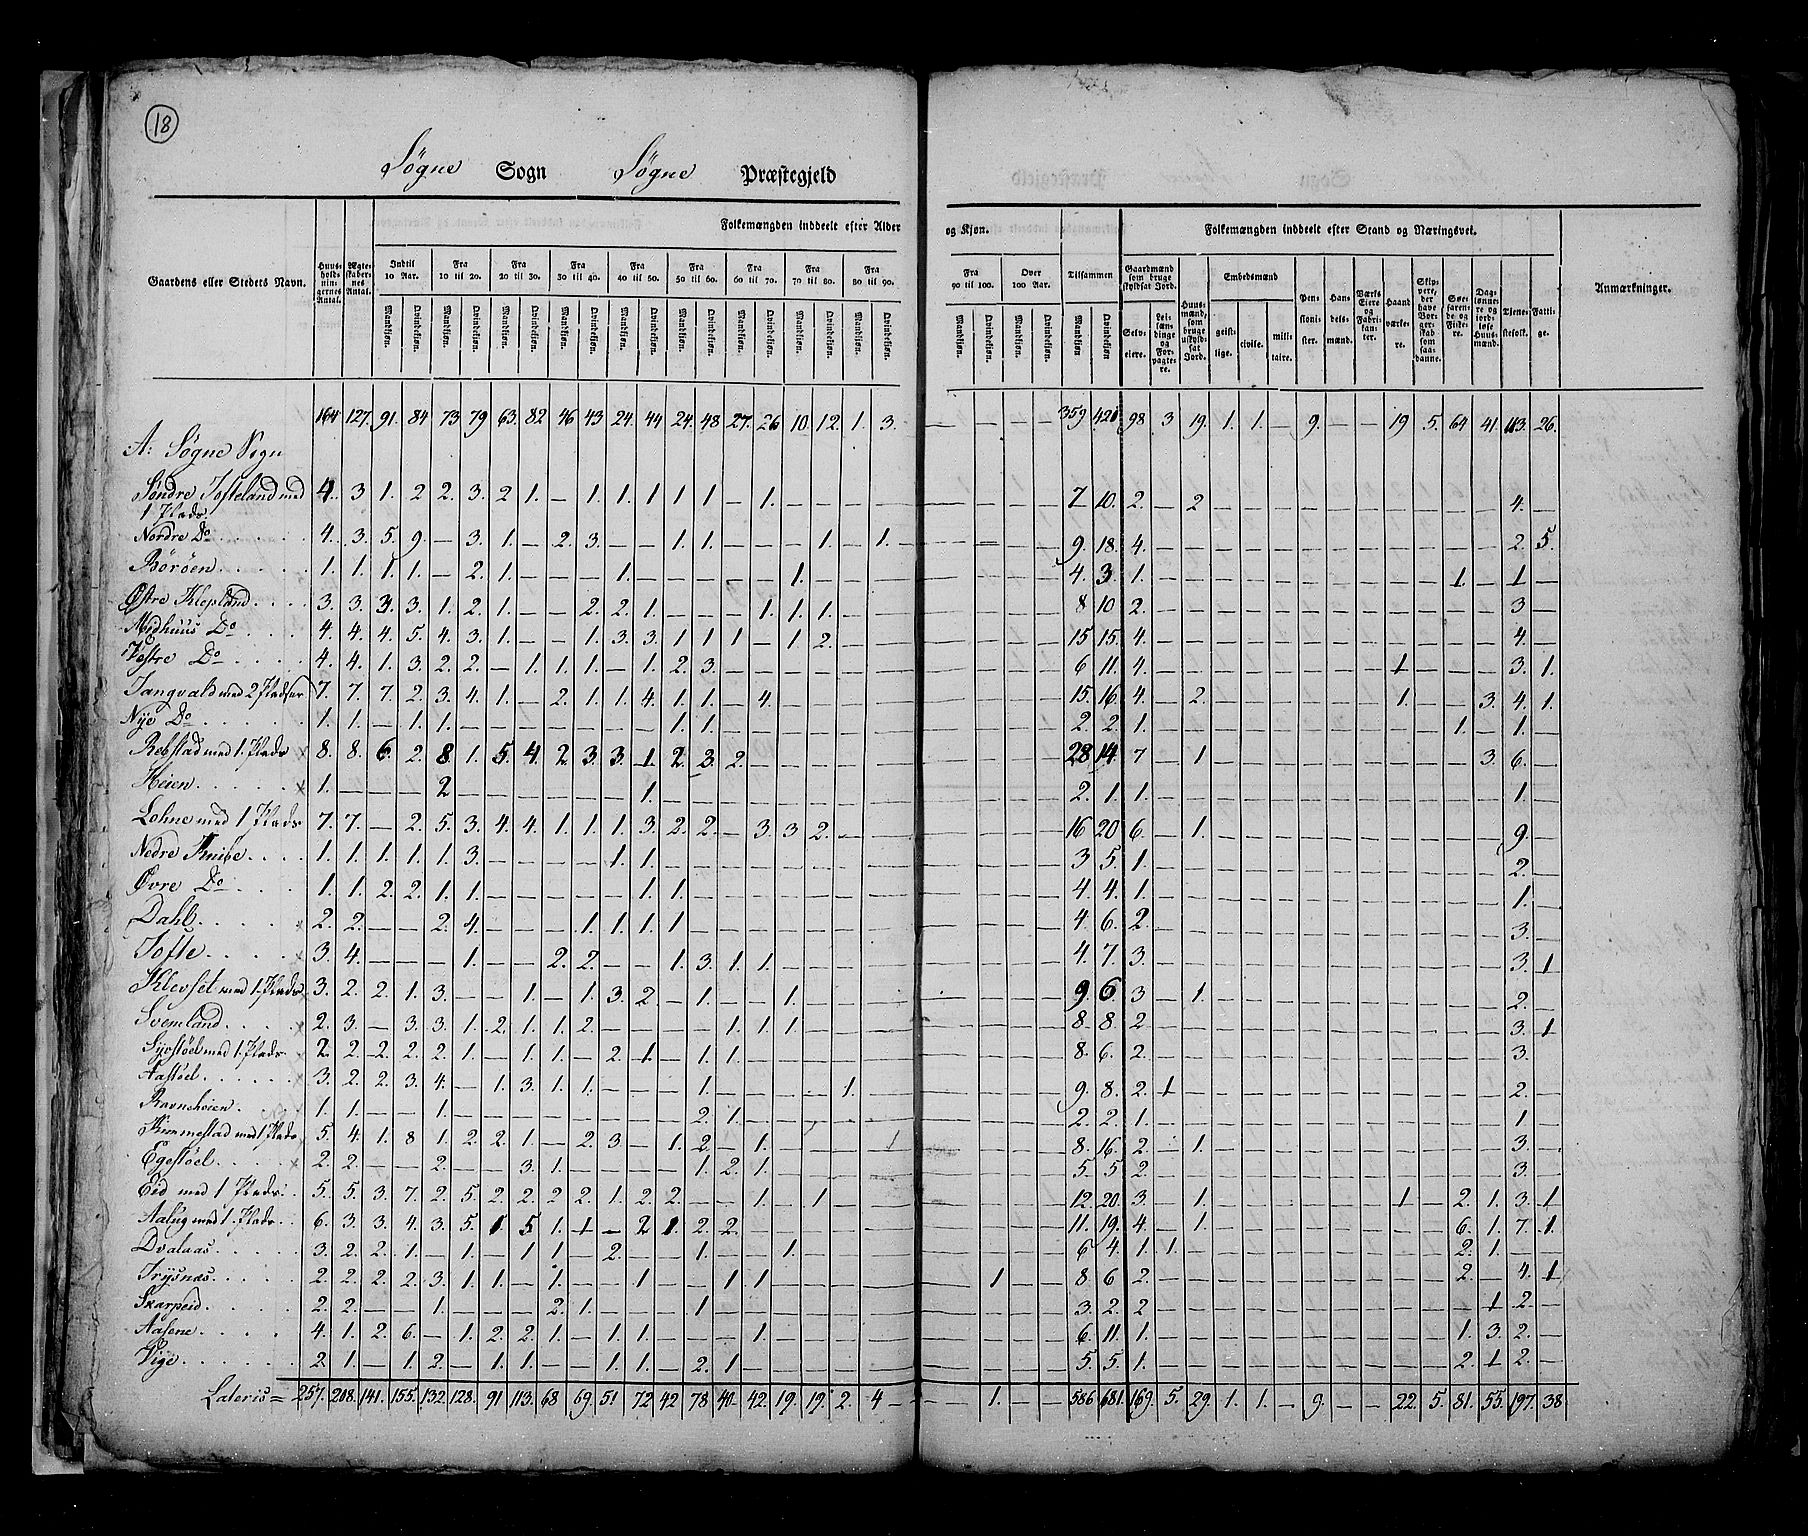 18
Søgne Sogn Søgne Præstegjeld
Gaardens eller Stedets Navn. Huusholdningernes Antal. Ægteskabernes Antal. Folkemængden inddeelt efter Alder og Kjøn. Folkemængden inddeelt efter Stand og Næringsvei. Anmærkninger.
Indtil 10 Aar. Fra 10 til 20. Fra 20 til 30. Fra 30 til 40. Fra 40 til 50. Fra 50 til 60. Fra 60 til 70. Fra 70 til 80. Fra 80 til 90. Fra 90 til 100. Over 100 Aar. Tilsammen
Mandkjøn. Qvindekjøn.
Gaardmænd som bruge skyldsat Jord. Selveiere. Leilændinge og Forpagtere. Huusmænd, som bruge uskyldsat Jord. Embedsmænd geistlige. civile. militaire. Pensionister. Handelsmænd. Værks Eiere og Fabrikanter. Haandværkere. Skippere, der have Borgerskab som saadanne. Søefarende og Fiskere. Dagslønnere og jordløse Huusmænd. Tjenestefolk. Fattige.
164 127. 91. 84 73 79 63. 82 46 43 24. 44 24. 48 27. 26 10. 12. 1. 3. — — — — 359. 421 98 3 19. 1. 1. — 9. — — 19 5. 64 41. 113. 26.
A: Søgne Sogn
Søndre Tofteland med 4. 3 1. 2 2. 3. 2 1. — 1. 1. 1 1 1 — 1. — — — — 7 10. 2. — 2 — 4. —
1 Plads.
Nordre Do 4. 3. 5. 9. — 3. 1. — 2. 3. — — 1. 1. — — — 1. — 1. 9. 18. 4. — 2. 5.
Børøen 1. 1. 1. 1. — 2. 1. — — — 1. — — — — — 1. — — — 4. 3 1. — 1. — 1 —
Østre Klepland 3. 3. 3. 3. 1. 2. 1. — — 2. 2. 1. — — — 1. 1. 1. — — 8 10 2. — 3 —
Midhuus Do 4. 4. 4. 5. 4. 3. 1. — — 1. 3. 3. 1 1 1 — 1 2. — — 15 15. 4. — 4. —
Vestre Do 4. 4. 1. 3. 2. 2. — 1. 1. 1. — 1. 2. 3. — — — — — — 6 11. 4. — 1 — 3. 1.
Tangvald med 2 Pladser 7. 7. 7 2. 3. 4. 1. — 2. 1. 1. 4. 1. 1. — 4. — — — — 15. 16 4. — 2. — 1. — 3. 4. 1
Nye Do 1. 1. — 1. 1. — 1. 1. — 2 2 1. — 1. — 1. —
Rebstad med 1. Plads 8. 8. 6. 2. 8. 1. 5. 4. 2. 3. 3. 1. 2. 3. 2. — 28 14. 7 — 1 — 3. 6. —
Heien 1. — — — 2 — 1. — 2. 1. 1. — 1. —
Lohne med 1 Plads 7. 7. — 2. 5. 3. 4. 4. 1. 1. 1. 3. 2. 2. — 3. 3 2. — — 16 20 6. — 1. — 9. —
Nedre 1. 1. 1. 1. 1. 3. — — — — 1. 1. — 3 5. 1. — 2. —
Øvre Do 1. 1. 2. 2. 1. 1. — 1. 1. — 4. 4. 1. — 1. —
Dahl 2. 2. — — 2. 4. — — — 1. 1. 1. 1 — 4. 6. 2. — 3. —
Tofte 3. 4. — — — 1. — — 2. 2. — — 1. 3. 1. 1. — 4. 7. 3. — 3. 1
Klevset med 1. Plads 3. 2. 2. 1. 3. — — 1. — 1. 3. 2 — 1. — — 1. — 9. 6 3 — 1. — 2. —
Svemland 2. 3. — 3. 3. 1. 2. 1. 1. 2. — — — — 1. 1. 1. — 8. 8. 2. — 3. 1
med 1. Plads 2. 2. 2. 2. 2. 1. — 1. 1. — 2. 1. — 1. 1. — 8. 6. 2. — 3. —
Aastøel 3. 2. 2. 3. 4. — 1. 3. 1. 1. — — — 1. — — — — 1. — 9. 8. 2. 1 — 2. —
Ravneheien 1. 1. — — 1. — 2. 1. — 2. 2. 1. — 1 —
med 1 Plads 5. 4. 1. 8 1. 2. 2. 1. — 2. 3. — 1. 2. — 1. — — — 1 8. 16. 2. — 1. — 3. —
Egestøel 2. 2. — — 2. — — 3. 1. — — — — 1. 2. 1. — 5. 5 2. — 3. —
Eid med 1 Plads 5. 5. 3. 7. 2. 5. 2. 2. 2 2. 1. 2. 2. — — 1. — 1. — — 12. 20. 3. — 1. — 1 — 2. 1. 3. 1
med 1. Plads 6. 3. 3. 4. 3. 5. 1 5 1. 1 — 2 1. 2. 2. — 11. 19. 4. — 1. — 6. 1. 7. 1
Dvalaas 3. 2. 2. 1. — 1. — 1 1. — 2. — — 1. — — 1. — 6 4. 1. 1. — 2. 1. — —
Trysnæs 2. 2. 2. 2. 3. 1. 1. — 1. — — 1. — — 1 1. — 1 8. 6 2. — 2. — 4. 1
Skarpeid 2. 2. — — 1. — — — 2. 1. — — — 1 — 3. 2. 2 — 1 2. —
Aasene 4. 1. 2. 6. — 1. 2. 2. 1. — 1. 1. — — — 1. — 6. 11. 1. — 1. 3. 2. —
Vige 2. 1. — 1. 2. — 1. 1. — — 1. 1. — 2. 1. — 5. 5. 1. — 2. 1 2. —
Lateris = 257. 208. 141. 155. 132. 128. 91 113. 68 69. 51 72 42 78 40. 42. 19. 19. 2. 4 — — 1. — 586 681. 169. 5. 29. 1. 1. — 9. — — 22. 5. 81. 55. 197. 38